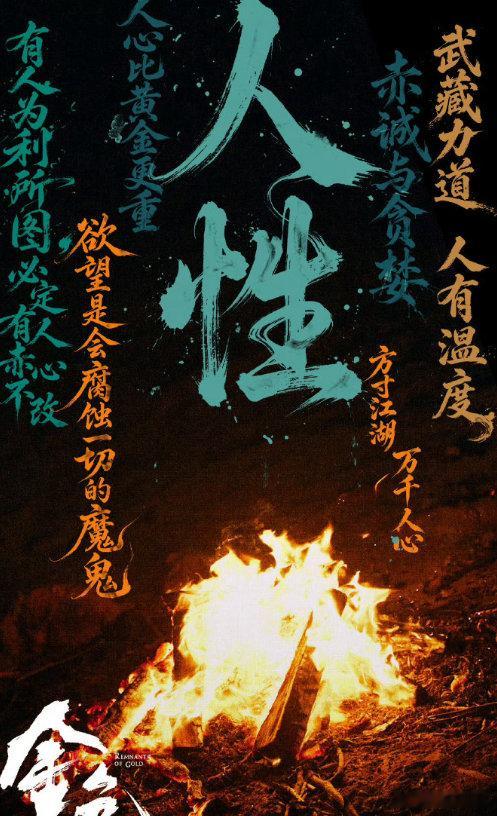 武藏力道 人有温度
赤诚与贪婪
方寸江湖
万千人心
人性
人心比黄金更重
欲望是会腐蚀一切的魔鬼
有人为利所图
必定有人赤心不改
REMNANTS
OF GOLD